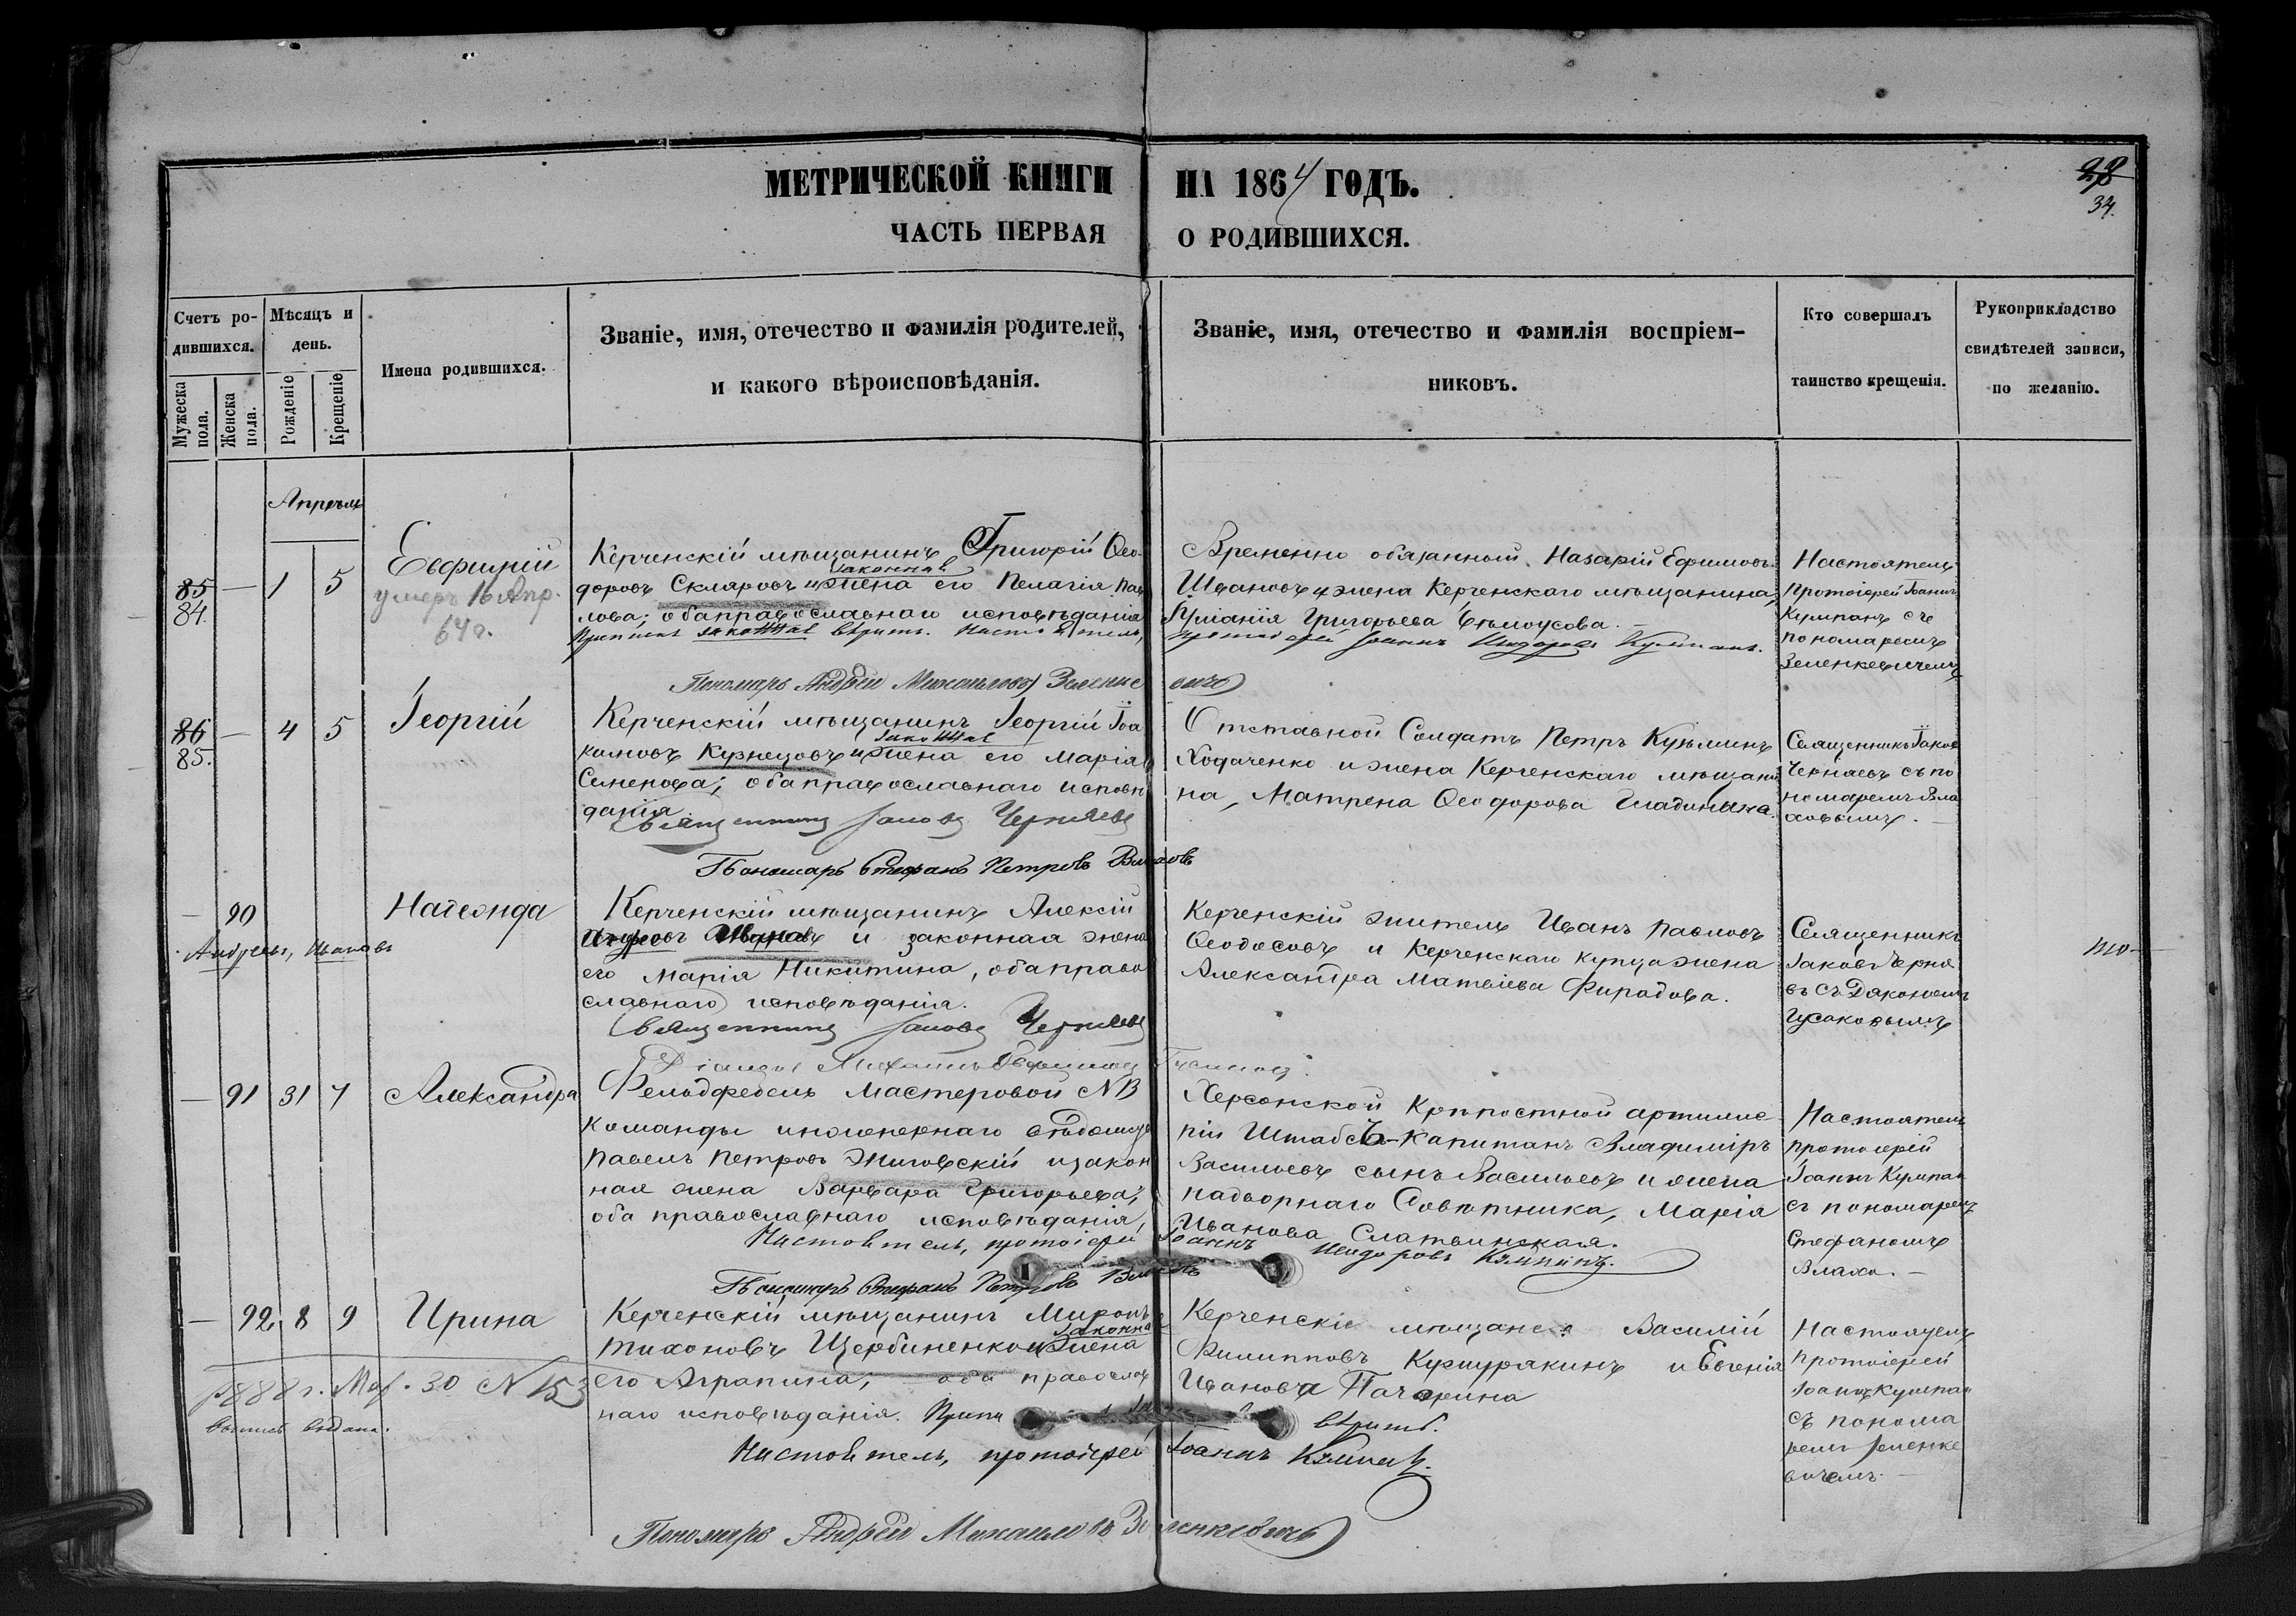 МЕТРИЧЕСКОЙ КНИГИ НА 1864 ГОДЪ.
ЧАСТЬ ПЕРВАЯ О РОДИВШИХСЯ.
28
34.
Счетъ ро-
дившихся.
Мужеска пола.
Женска пола.
Мѣсяцъ и
день.
Рожденіе
Крещеніе
Имена родившихся.
Званіе, имя, отечество и фамилія родителей,
и какого вѣроисповѣданія.
Званіе, имя, отечество и фамилія воспріем-
никовъ.
Кто совершалъ
таинство крещенія.
Рукоприкладство
свидѣтелей записи,
по желанію.
Апрѣль
85 — 1 5
84.
Евфимій
умеръ 16 Апр.
64 г.
Керченскій мѣщанинъ Григорій Ѳео-
законная
доровъ Скляровъ и жена его Пелагія Пав
лова; оба православнаго исповѣданія
законная вѣрить. Настоятель,
протоіерей Іоаннъ Кумпанъ.
Пономарь Андрей Михаиловъ Зеленкевичъ
Временно обязанный Назарій Ефимовъ
Ивановъ и жена Керченскаго мѣщанина,
Іуліанія Григорьева Бѣлоусова.
Настоятель
Протоіерей Іоаннъ
Кумпанъ съ
пономаремъ
Зеленкевичемъ
86 — 4 5
85.
Георгій
Керченскій мѣщанинъ Георгій Іоа
законная
кимовъ Кузнецовъ и жена его Марія
Семенова; оба православнаго исповѣ
данія.
Священникъ Іаковъ Черняевъ
Пономарь Стефанъ Петровъ Влаховъ
Отставной Солдатъ Петръ Кузьминъ
Ходаченко и жена Керченскаго мѣщани
на, Матрена Ѳеодорова Гладинына.
Священникъ Іаковъ
Черняевъ съ по
номаремъ Вла
ховымъ.
— 90
Андреевъ, Ивановъ
Керченскій мѣщанинъ Алексій
и законная жена
его Марія Никитина, оба право
славнаго исповѣданія.
Священникъ Іаковъ Черняевъ
Керченскій житель Иванъ Павловъ
Ѳеодосовъ и Керченскаго купца жена
Александра Матвіева Фирадова.
Священникъ
Іаковъ Черня
въ съ Діакономъ
Гусаковымъ
— 91 31 7
Александра
Фельдфебель Мастеровой №
команды инженернаго вѣдомства
Павелъ Петровъ Жиговскій и закон
ная жена Варвара Григорьева;
оба православнаго исповѣданія,
Настоятель, протоіерей Іоаннъ Исидоровъ Кумпанъ.
Пономарь Стефанъ Петровъ Влаховъ
Херсонской Крѣпостной артилле
ріи Штабсъ-Капитанъ Владиміръ
Васильевъ сынъ Васильевъ и жена
надворнаго Совѣтника, Марія
Иванова Слатвинская.
Настоятель
протоіерей
Іоаннъ Кумпан
съ пономаремъ
Стефаномъ
Влахо.
— 92 8 9
Ирина
1888 г. Мар. 30 № 153
выпись выдана.
Керченскій мѣщанинъ Миронъ
законная
Тихоновъ Щербиненко и жена
его Агрипина; оба православ
наго исповѣданія.
вѣрить.
Настоятель, протоіерей Іоаннъ Кумпанъ.
Пономарь Андрей Михаиловъ Зеленкевичъ
Керченскіе мѣщане: Василій
Филипповъ Курмуракинъ и Евгенія
Иванова Пачорина
Настоятель
протоіерей
Іоаннъ Кумпан
съ понома
ремъ Зеленке
вичемъ.